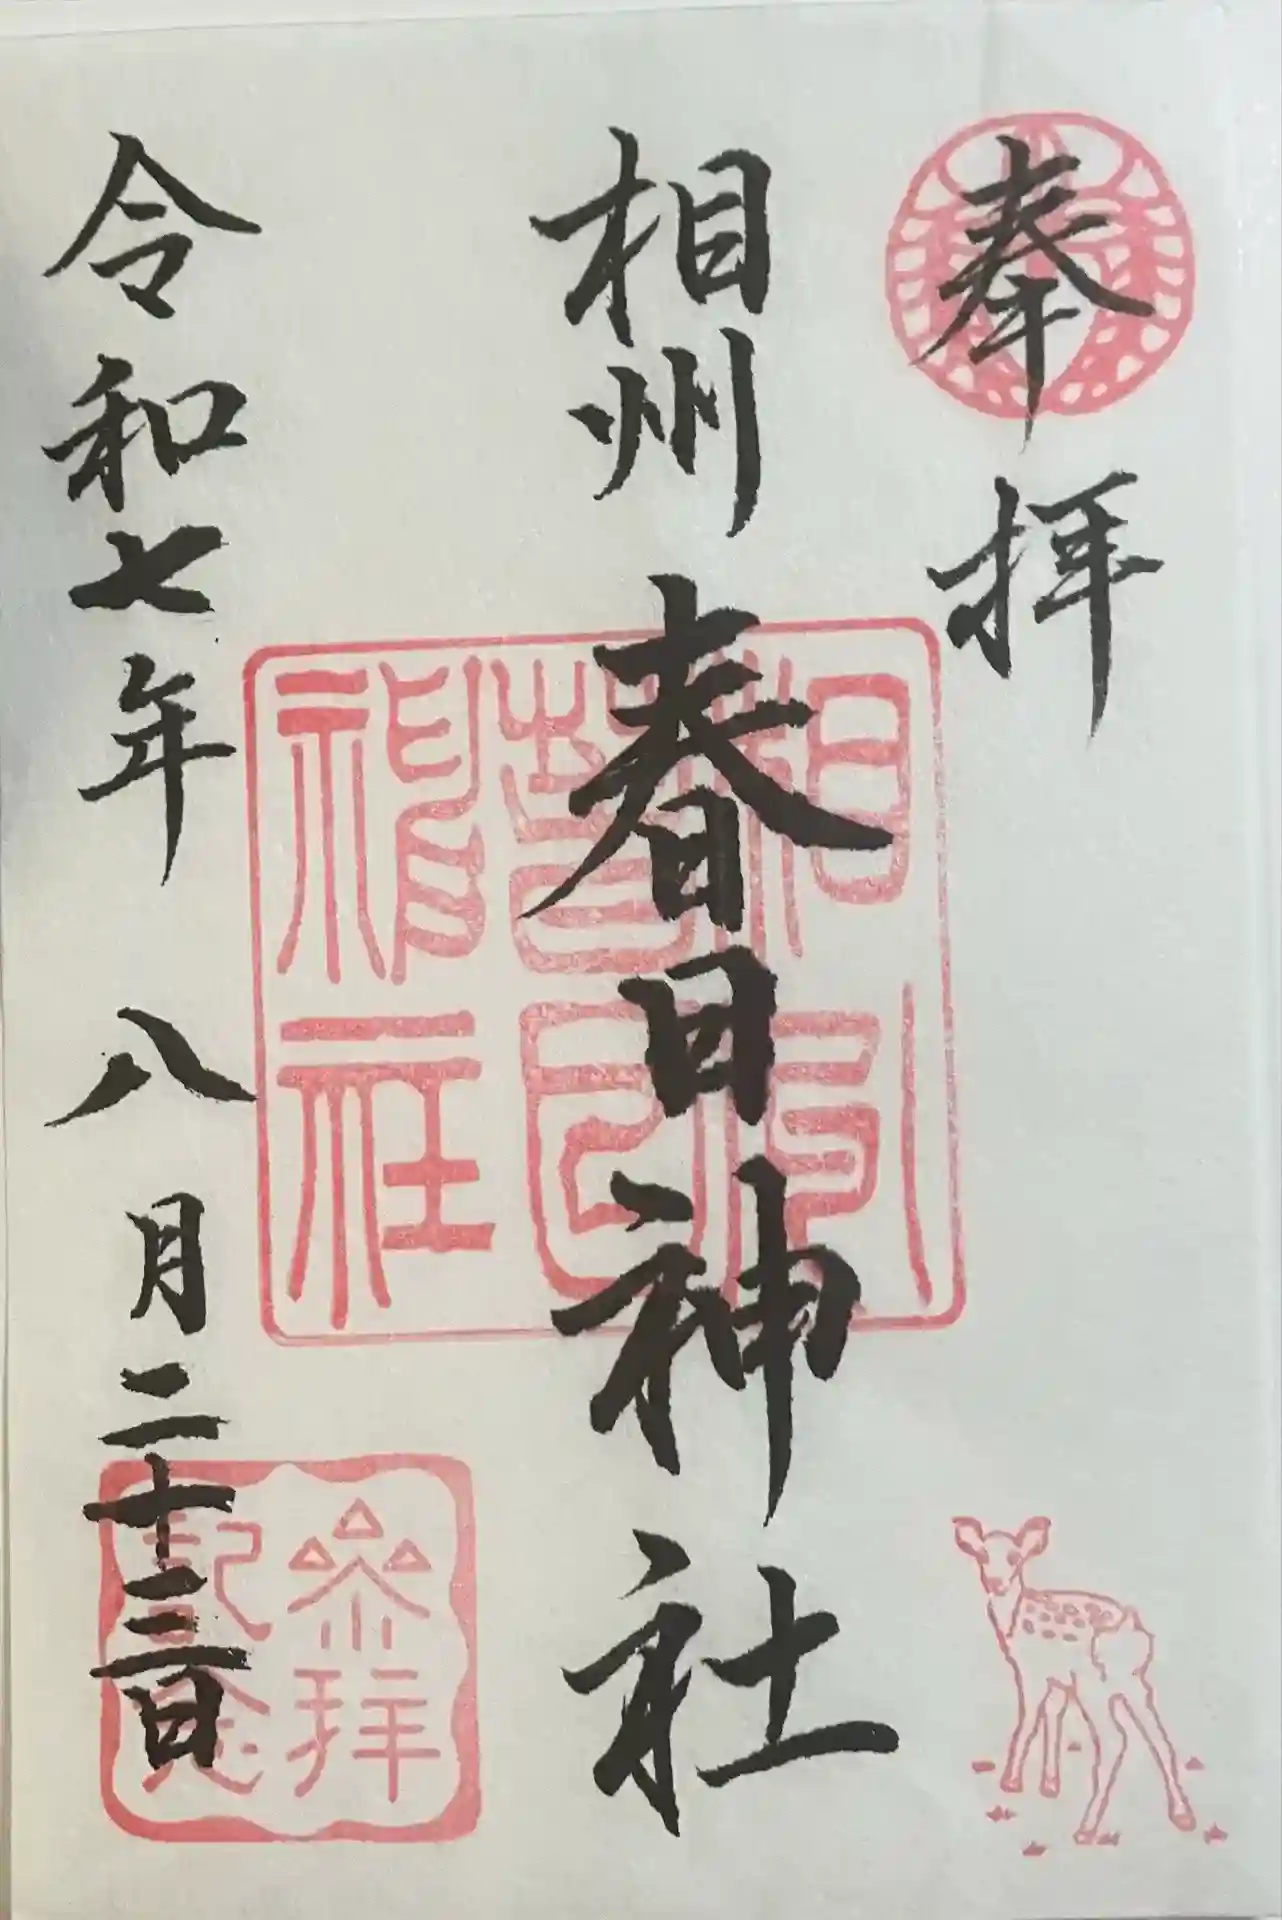 奉拝
相州春日神社
相州春日神社
令和七年八月二十三日
参拝記念